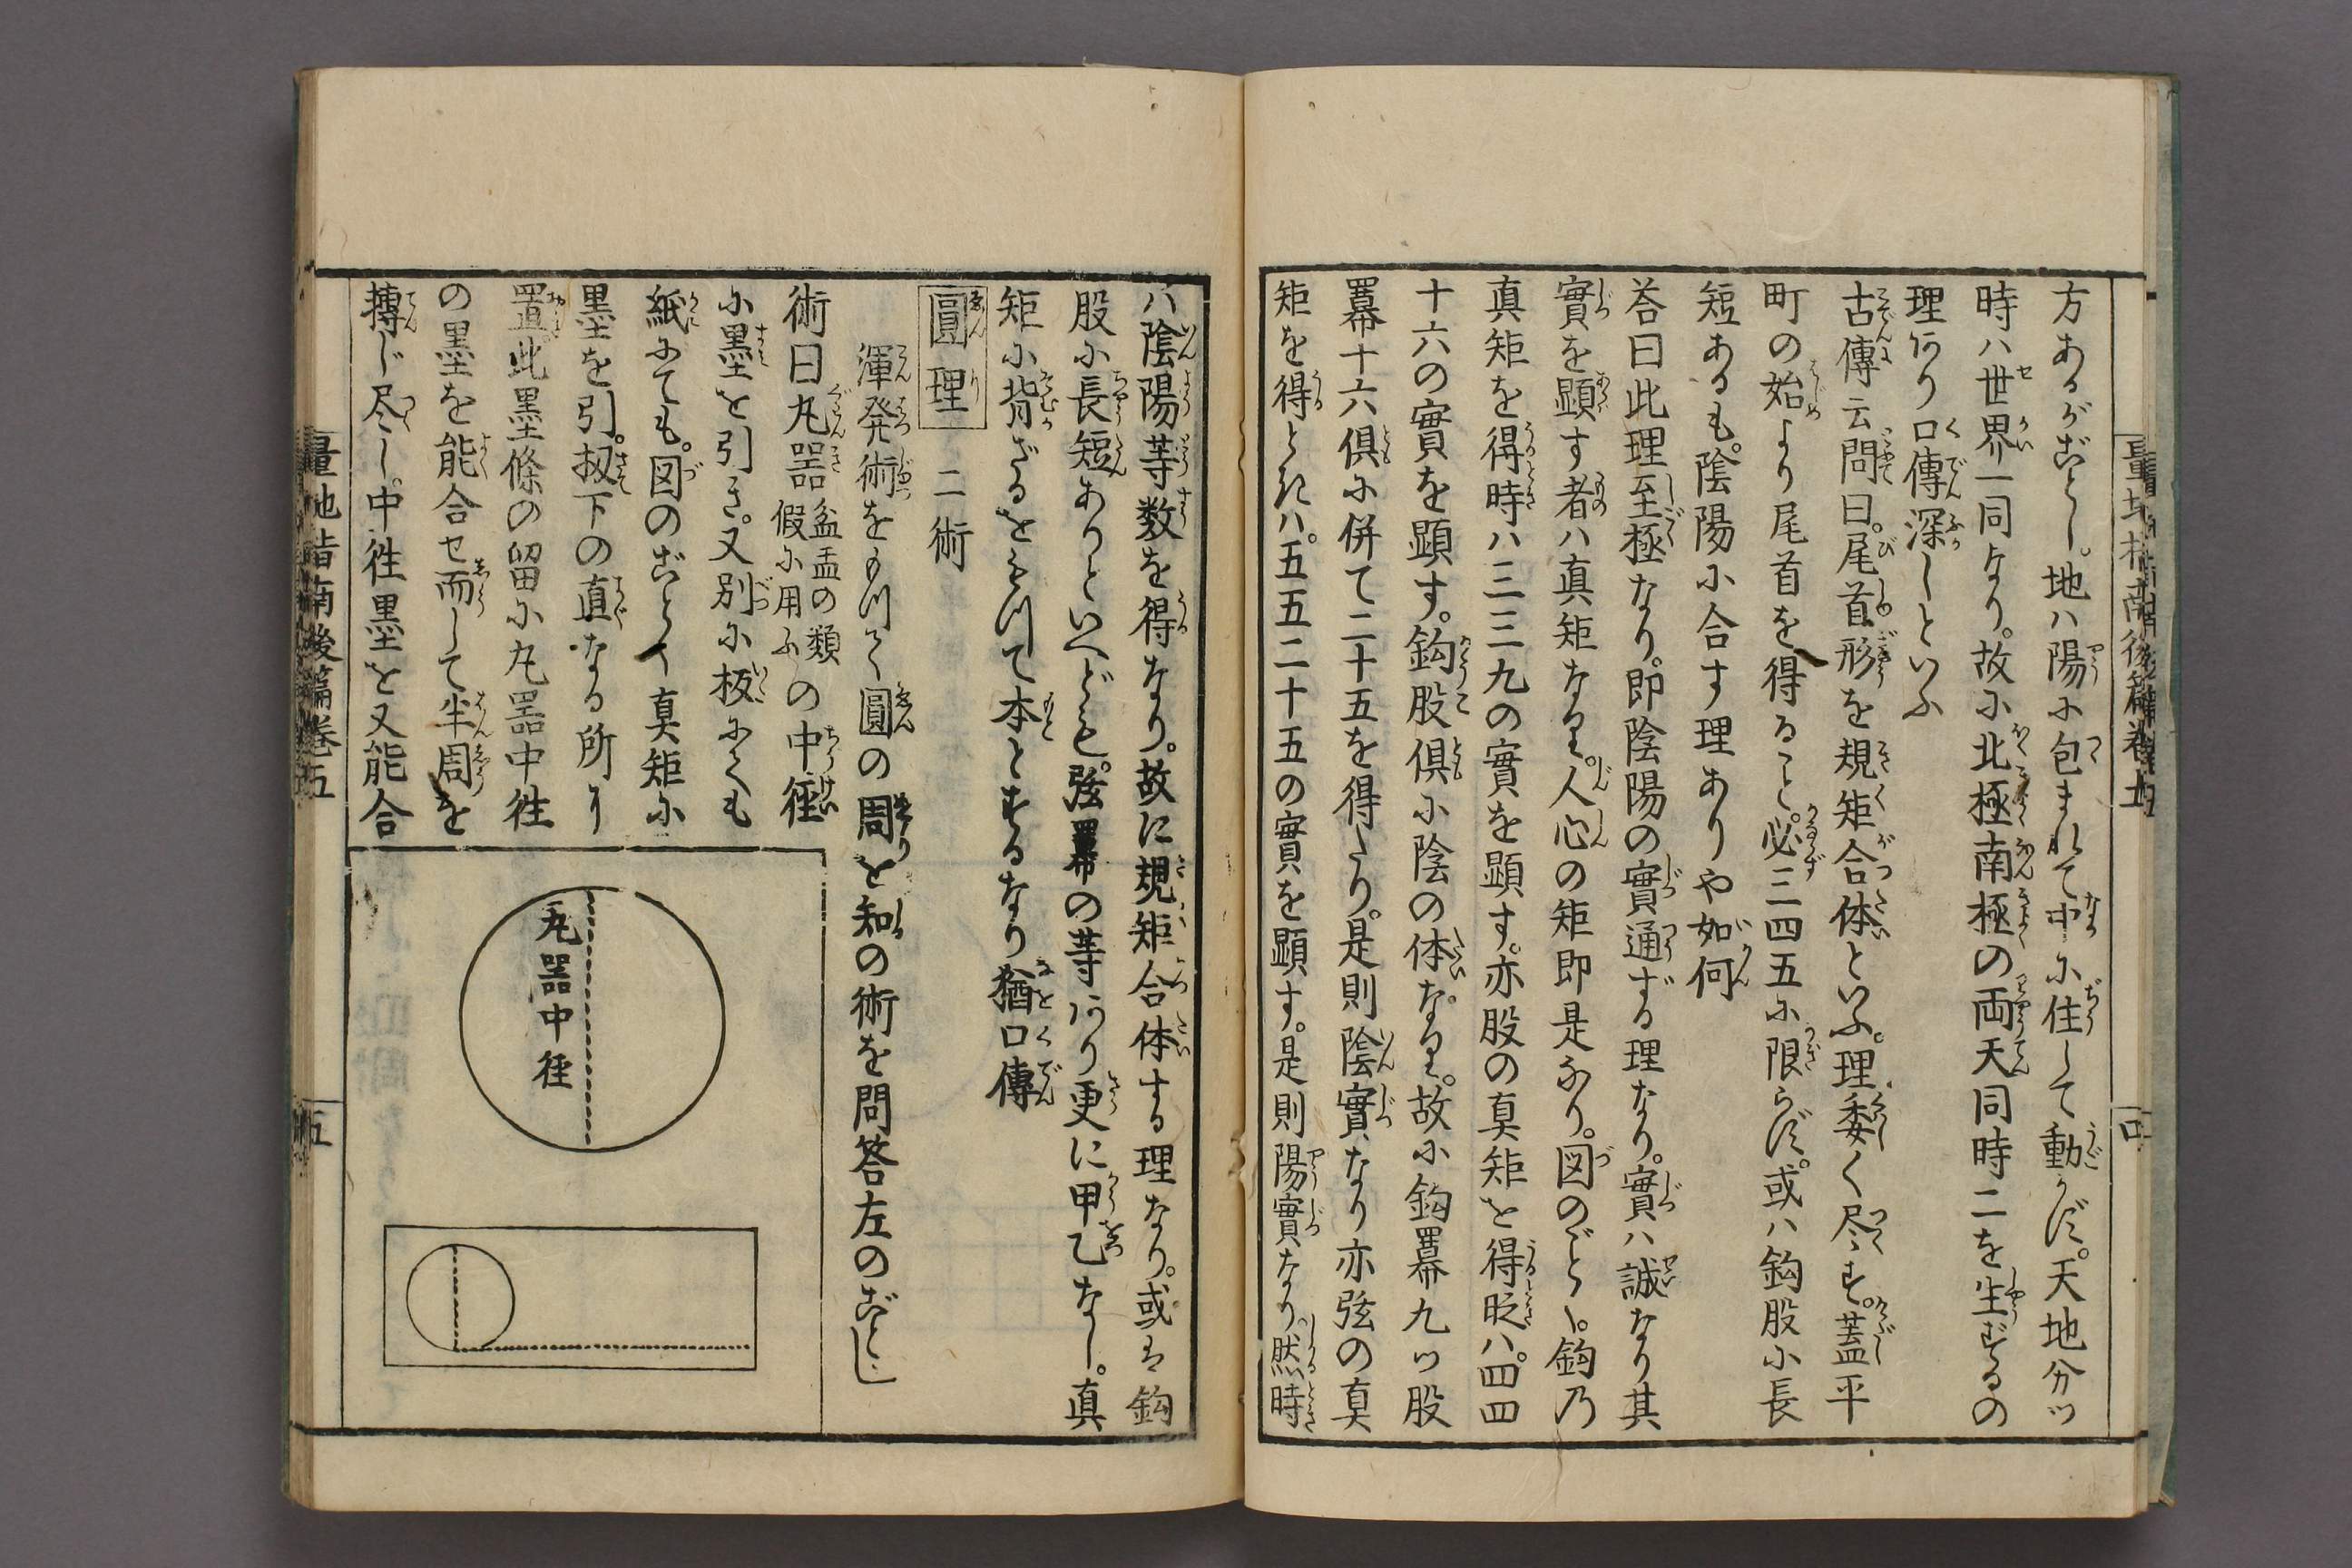 方あるがごとし。地ハ陽に包まれて中に住して動かず。天地分ツ
時ハ世界一同なり。故に北極南極の両天同時ニを生ずるの
理あり口傳深しといふ
古傳云問曰。尾首形を規矩合体といふ。理委く尽す。蓋平
町の始より尾首を得ること。必三四五に限らず。或ハ鈎股に長
短あるも。陰陽に合す理ありや如何
荅曰此理至極なり。即陰陽の實通ずる理なり。實ハ誠なり其
實を顕す者ハ真矩なり。人心の矩即是なり。図のごとく。鈎乃
真矩を得時ハ三三九の實を顕す。亦股の真矩を得旹ハ。四四
十六の實を顕す。鈎股倶に陰の体なり。故に鈎羃九ツ股
羃十六倶に併て二十五を得たり。是則陰實なり亦弦の真
矩を得ときハ。五五二十五の實を顕す。是則陽實なり。然時
量地指南後篇巻五
四
ハ陰陽等数を得なり。故に規矩合体する理なり。或は鈎
股に長短ありといへども。弦羃の等あり更に甲乙なし。真
矩に背ざるをもつて本とするなり猶口傳
圓理 二術
渾発術をもつて圓の周を知の術を問荅左のごとし
術曰丸器盆盂の類假に用ふの中径
に墨を引き。又別に板にても
紙にても。図のごとく真矩に
墨を引。扨下の直なる所り
置。此墨條の留に丸器中径
の墨を能合セ而して半周を
摶じ尽し。中径墨を又能合
丸器中径
量地指南後篇巻五
五